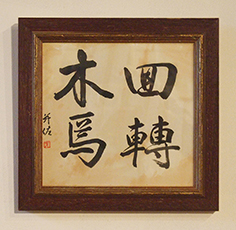 回轉
木馬